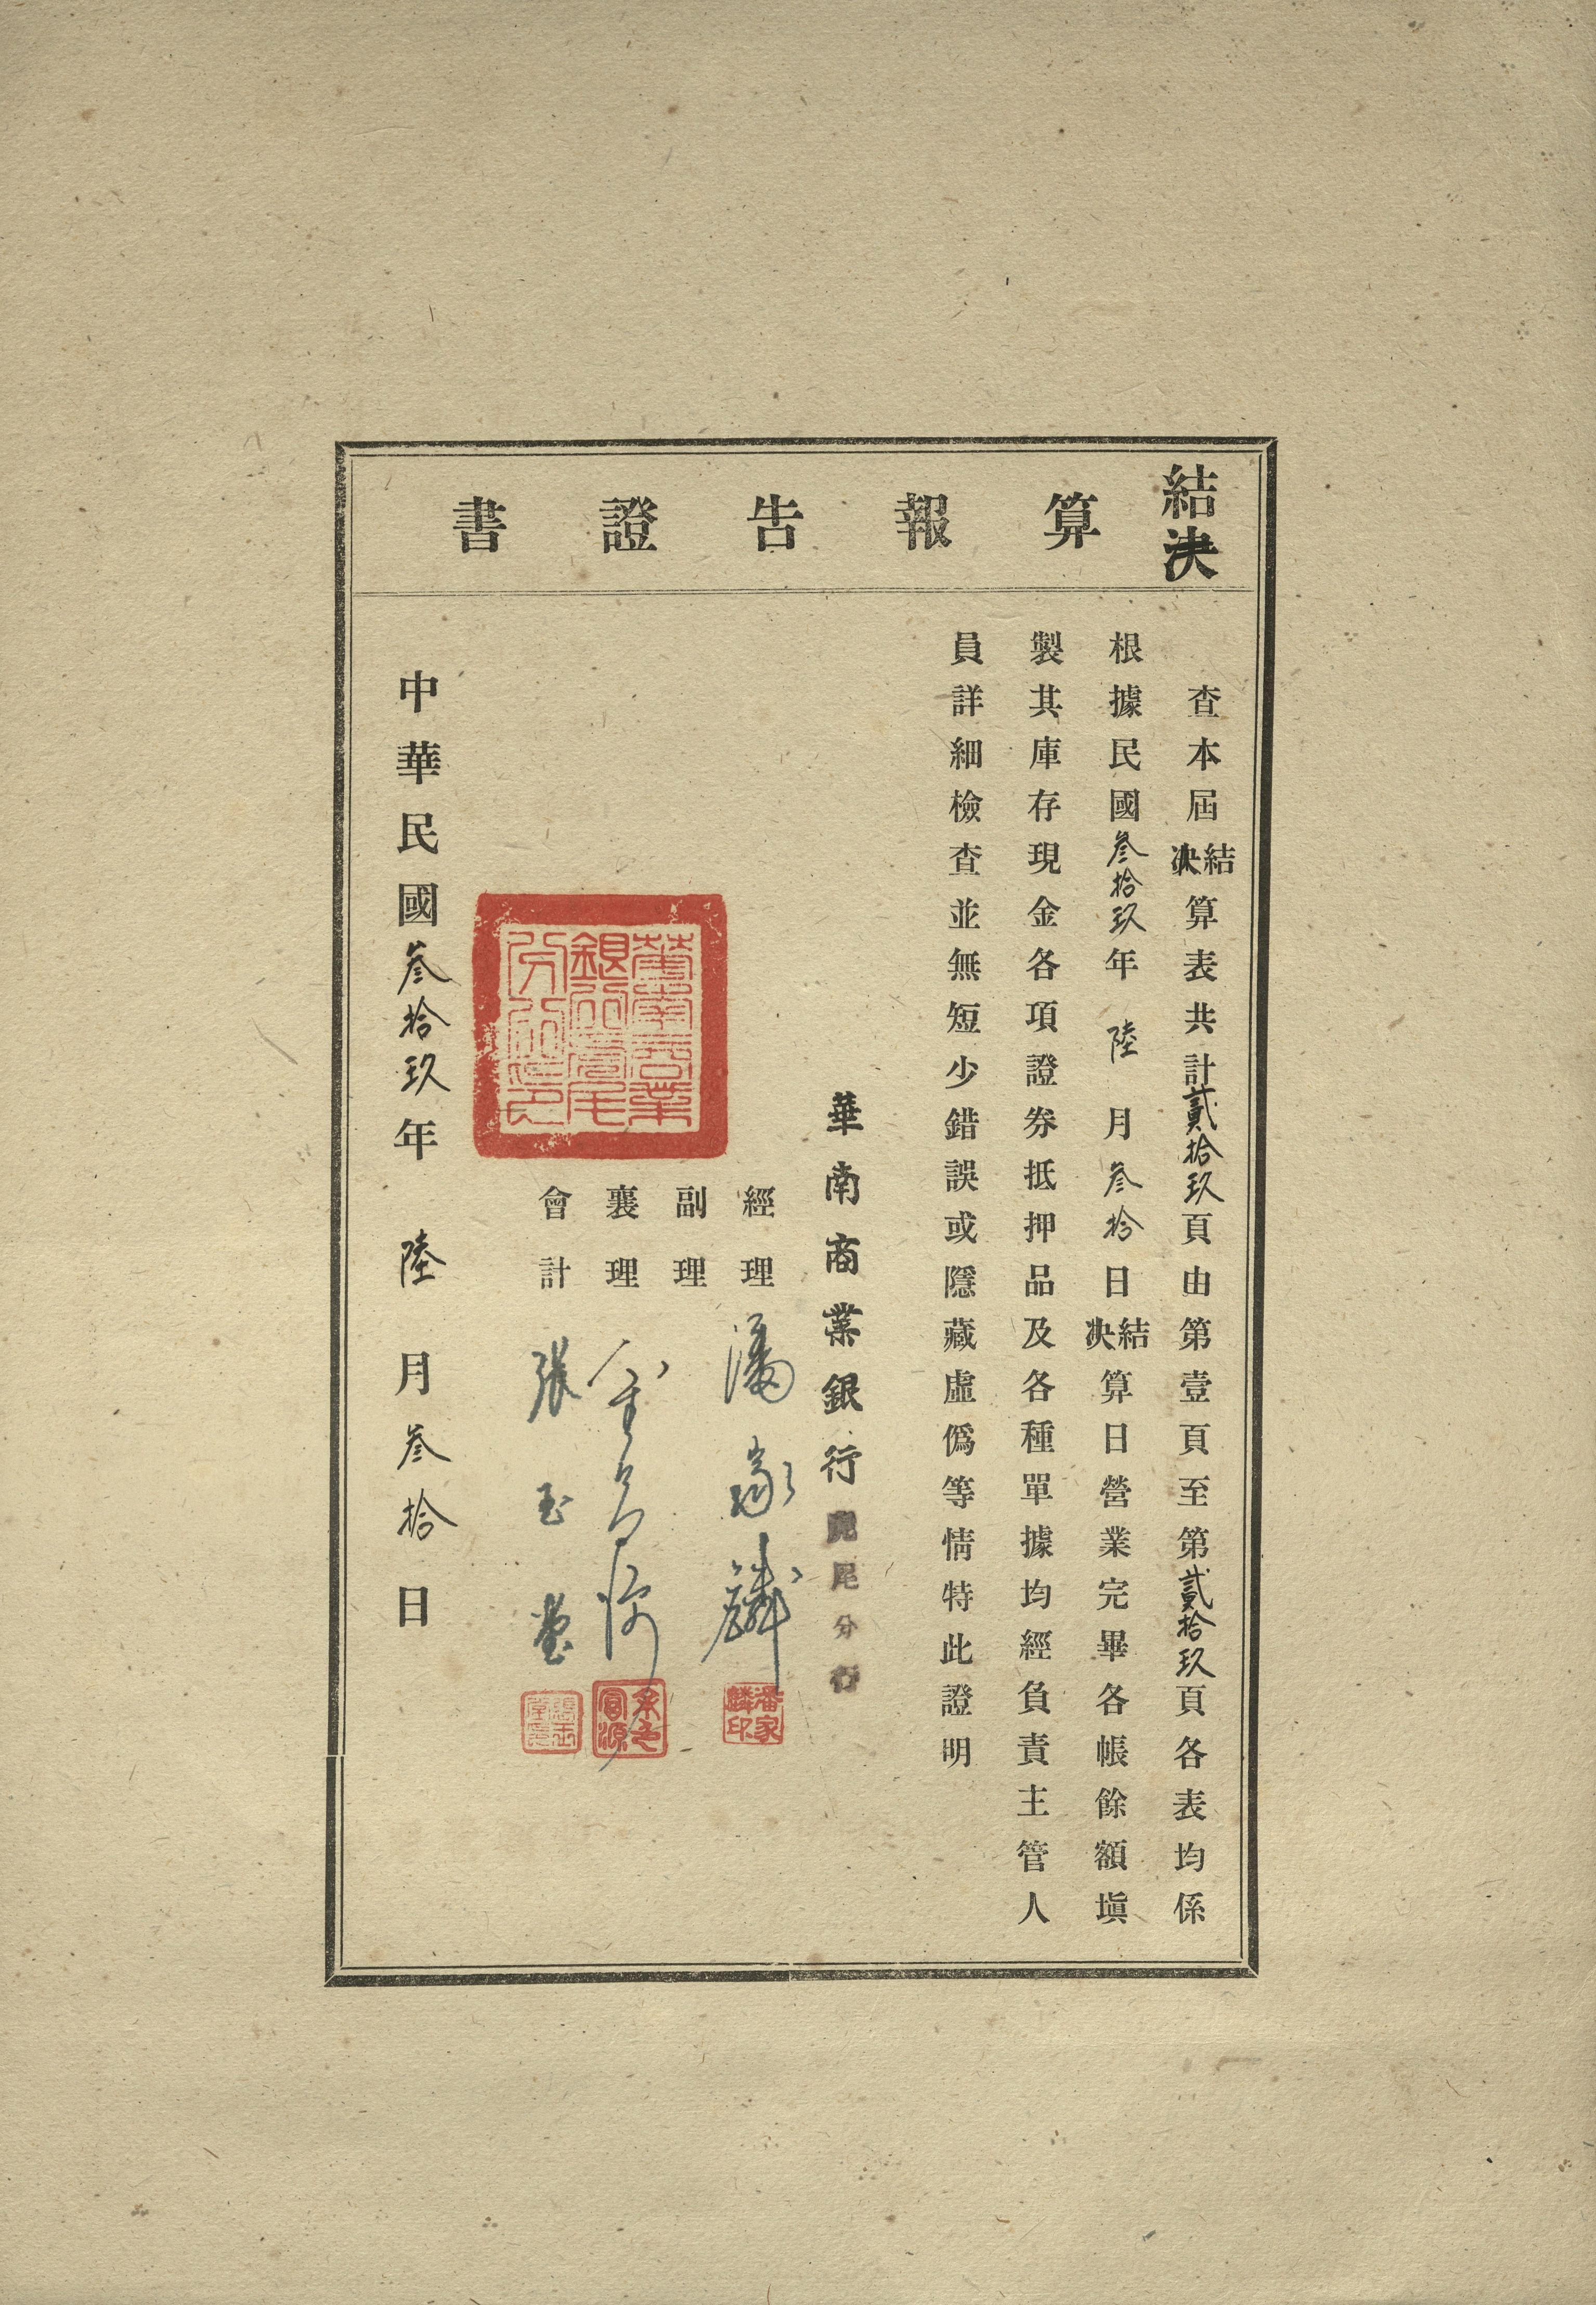 結決算報告證書
查本屆結決算表共計貳拾玖頁由第壹頁至第貳拾玖頁各表均係
根據民國叁拾玖年陸月叁拾日結決算日營業完畢各帳餘額塡
製其庫存現金各項證券抵押品及各種單據均經負責主管人
員詳細檢查並無短少錯誤或隱藏虛僞等情特此證明
華南商業銀行虎尾分行
經理 潘家麟
潘家麟印
副理
襄理
富源
會計 張玉堂
張玉堂
華南商業
銀行虎尾
分行之印
中華民國叁拾玖年陸月叁拾日